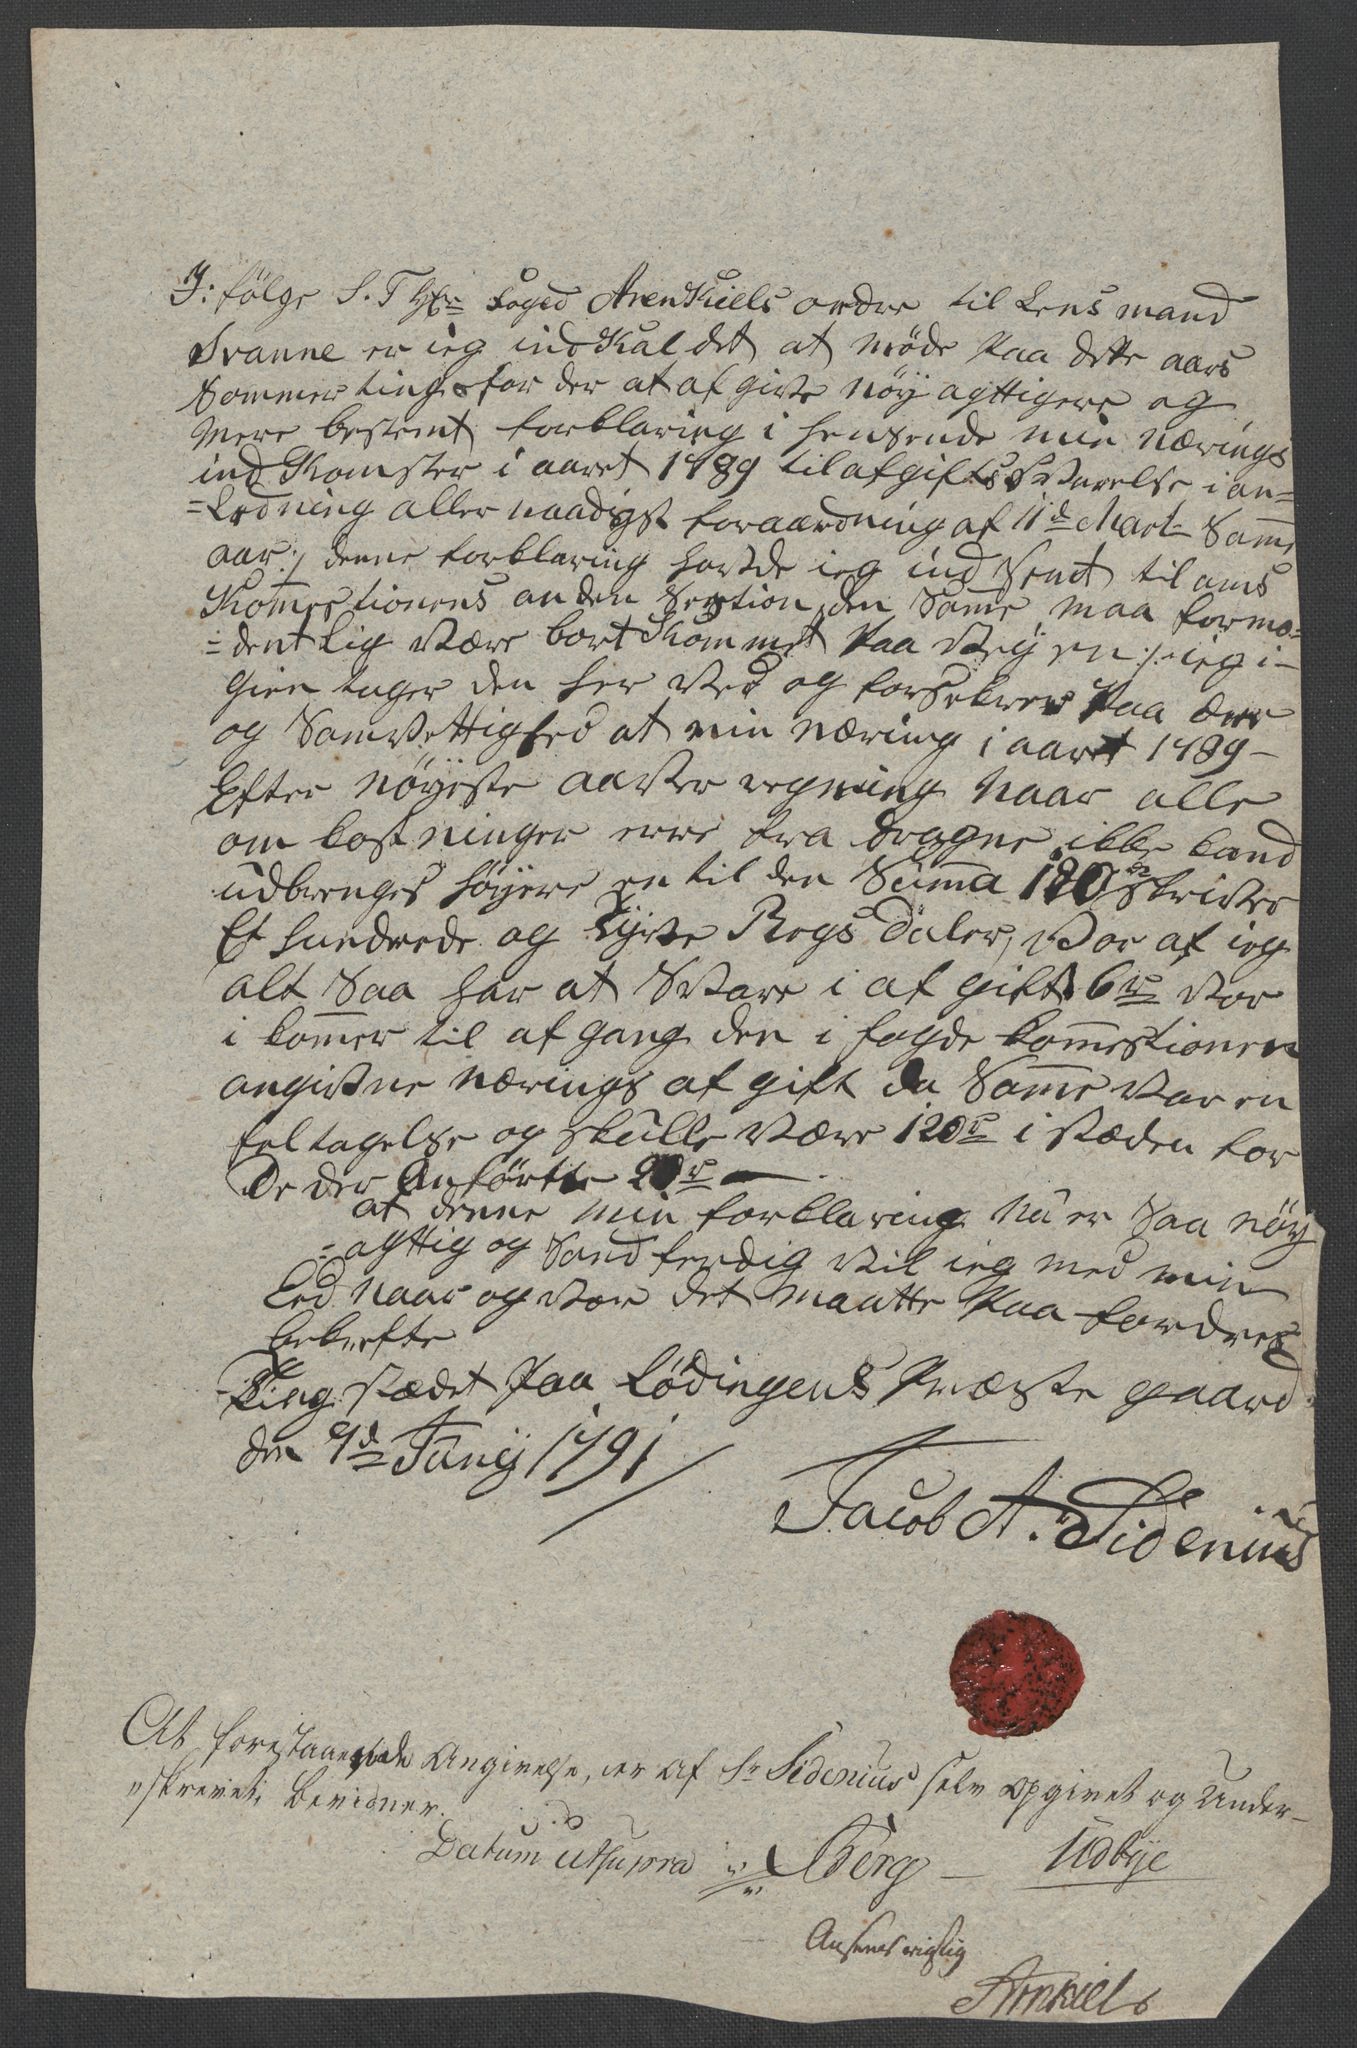 I: følge S. T Hr: Foged ArenKiels ordre til Lens mand
Svanne er ieg ind Kal det at møde paa dette aars
Sommer ting for der at af give nøy agttigere og
mere bestemt forklaring i hensende min nærings
ind Komster i aaret 1789 til afgifts Svarelse i an=
=Ledning aller naadigst foraardning af 11d Mart Same
aar: / denne forklaring havde ieg ind sendt til ams
Komestionens anden Sextion den Same maa formo=
=dentlig være bort Kommet paa Vey en :/: ieg i-
gien tager den her ved og forsekrer paa ære
og Samvettighed at min næring i aaret 1789 -
Efter nøyeste aaver regning naar alle
om kostninger erre fra dragne ikke kand
udbrenges høyere en til den Suma 120 rd skriver
Et hundrede og tyve Regs daler, Vor af ieg
alt Saa har at Svare i af gift 6 rd vor
i komer til af gang den i fogde komestionen
angivne nærings af gift da Same var en
feltagelse og skulle være 120 rd i stæden for
De der Anførtte rd
at denne min forklaring nu er Saa nøy
=agttig og Sandferdig vil ieg med min
Eed naar og vor det maatte paa fordres
bekrefte
Ting stædet paa Lødingens Præste gaard
den 9d Juny 1791
Jacob A. Sidenius
At forestaaende Angivelse, er af Sr Sidenius selv opgivet og Under-
skrevet; Bevidner.
Datum ut supra
Berg - Udbye
Ansees rigtig
Arnkiels